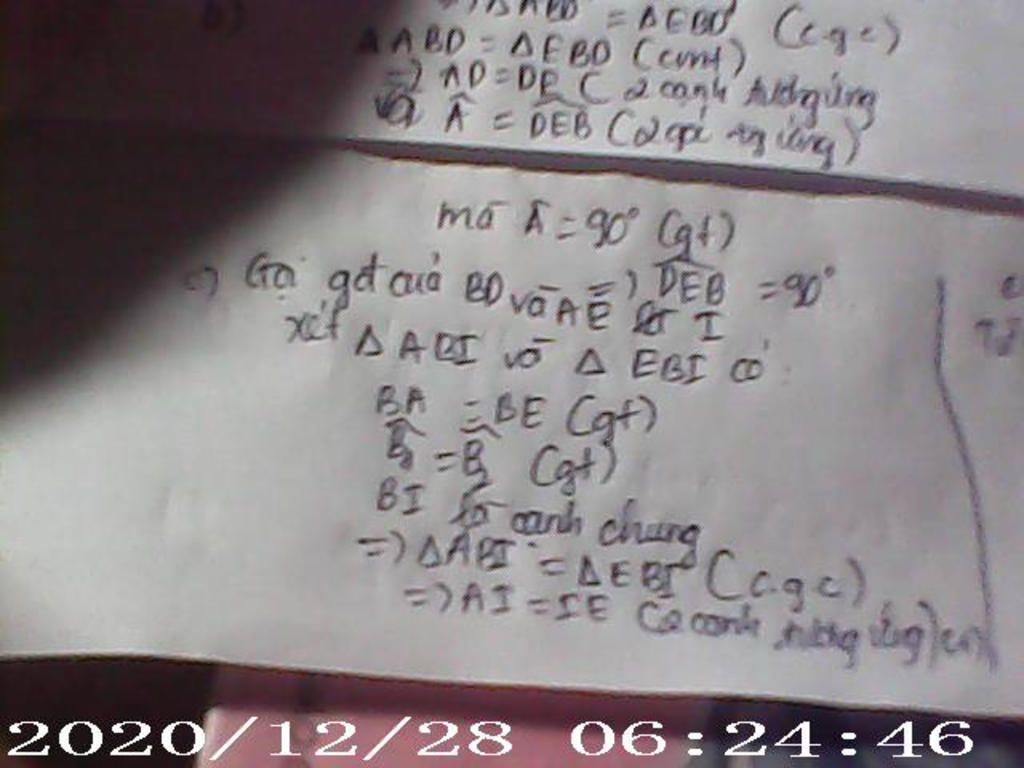 b)
=) ΔABD = ΔEBD (c.g.c)
ΔABD = ΔEBD (cmt)
=) AD = DE (2 cạnh tương ứng
và Â = DEB (2 góc tg ứng)
mà Â = 90° (gt)
=) DEB = 90°
c) Gọi gđ của BD và AE là I
xét ΔABI và ΔEBI có
BA = BE (gt)
(gt)
BI là cạnh chung
=) ΔABI = ΔEBI (c.g.c)
=) AI = IE (2 cạnh tương ứng)
2020/12/28 06:24:46